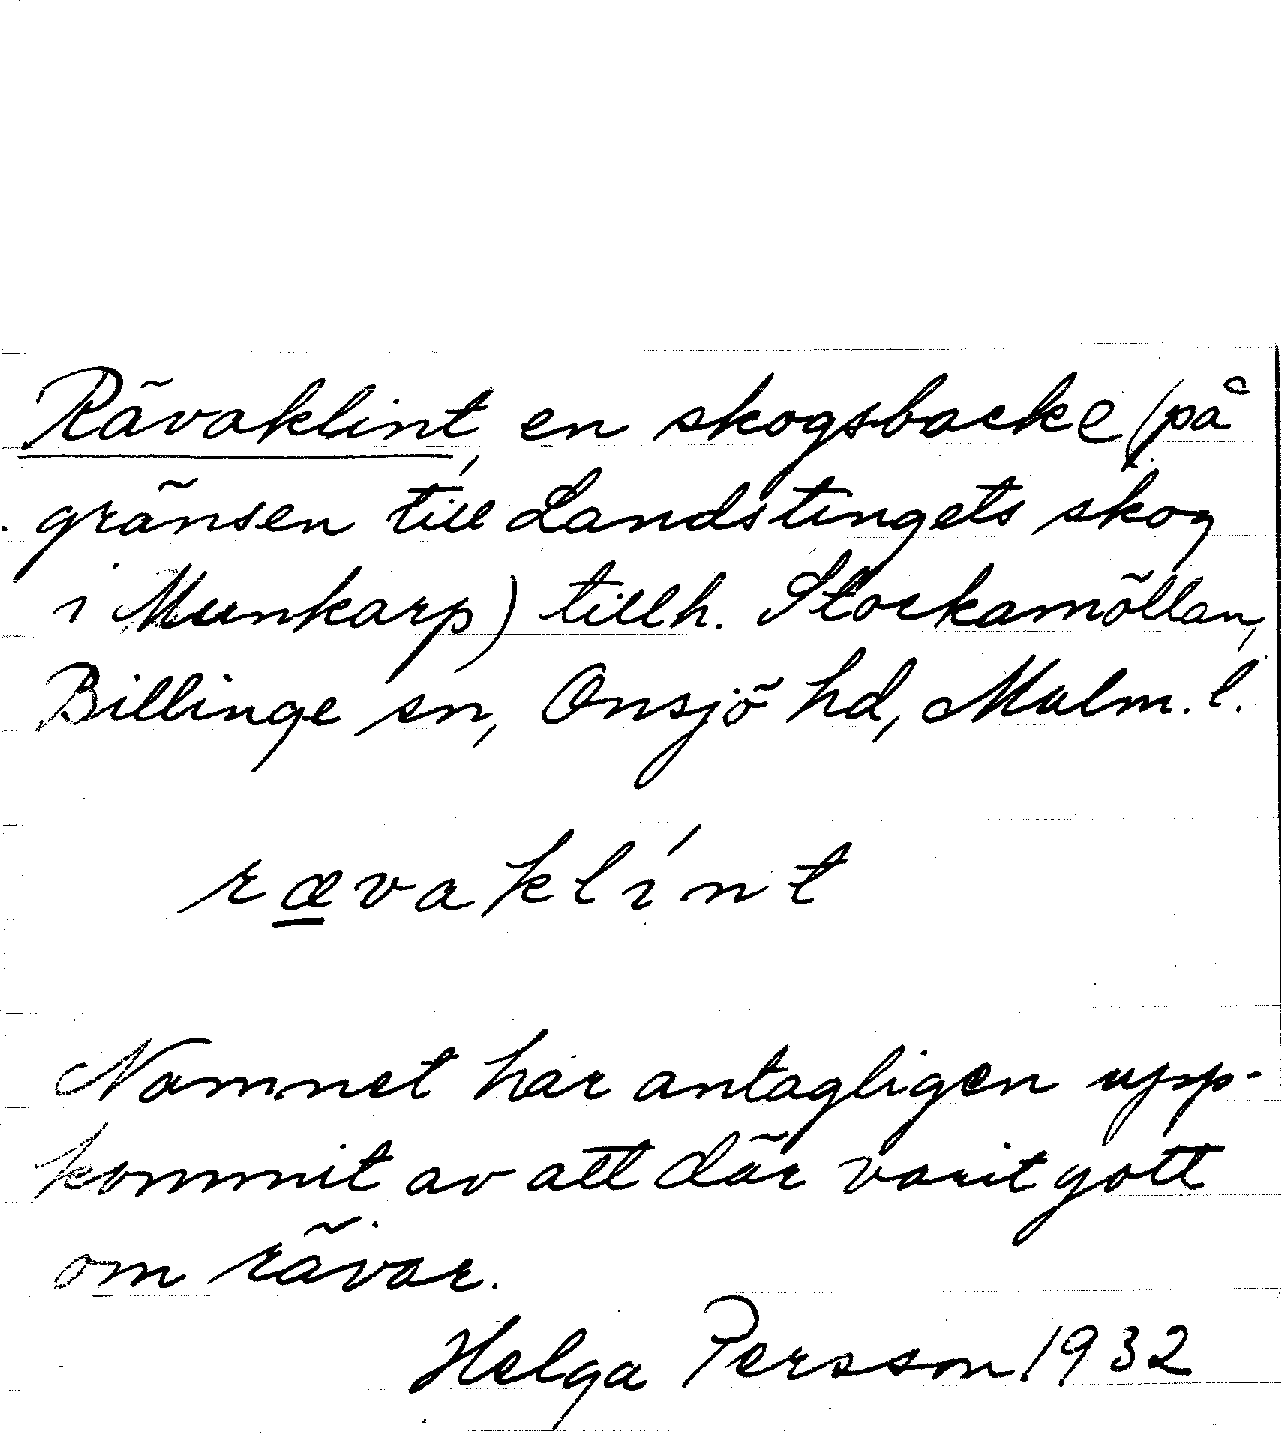 Rävaklint, en skogsbacke (på
gränsen till Landstingets skog
i Munkarp) tillh. Stockamöllan,
Billinge sn, Onsjö hd, Malm. l.
rævaklínt
Namnet har antagligen upp-
kommit av att där varit gott
om rävar.
Helga Persson 1932